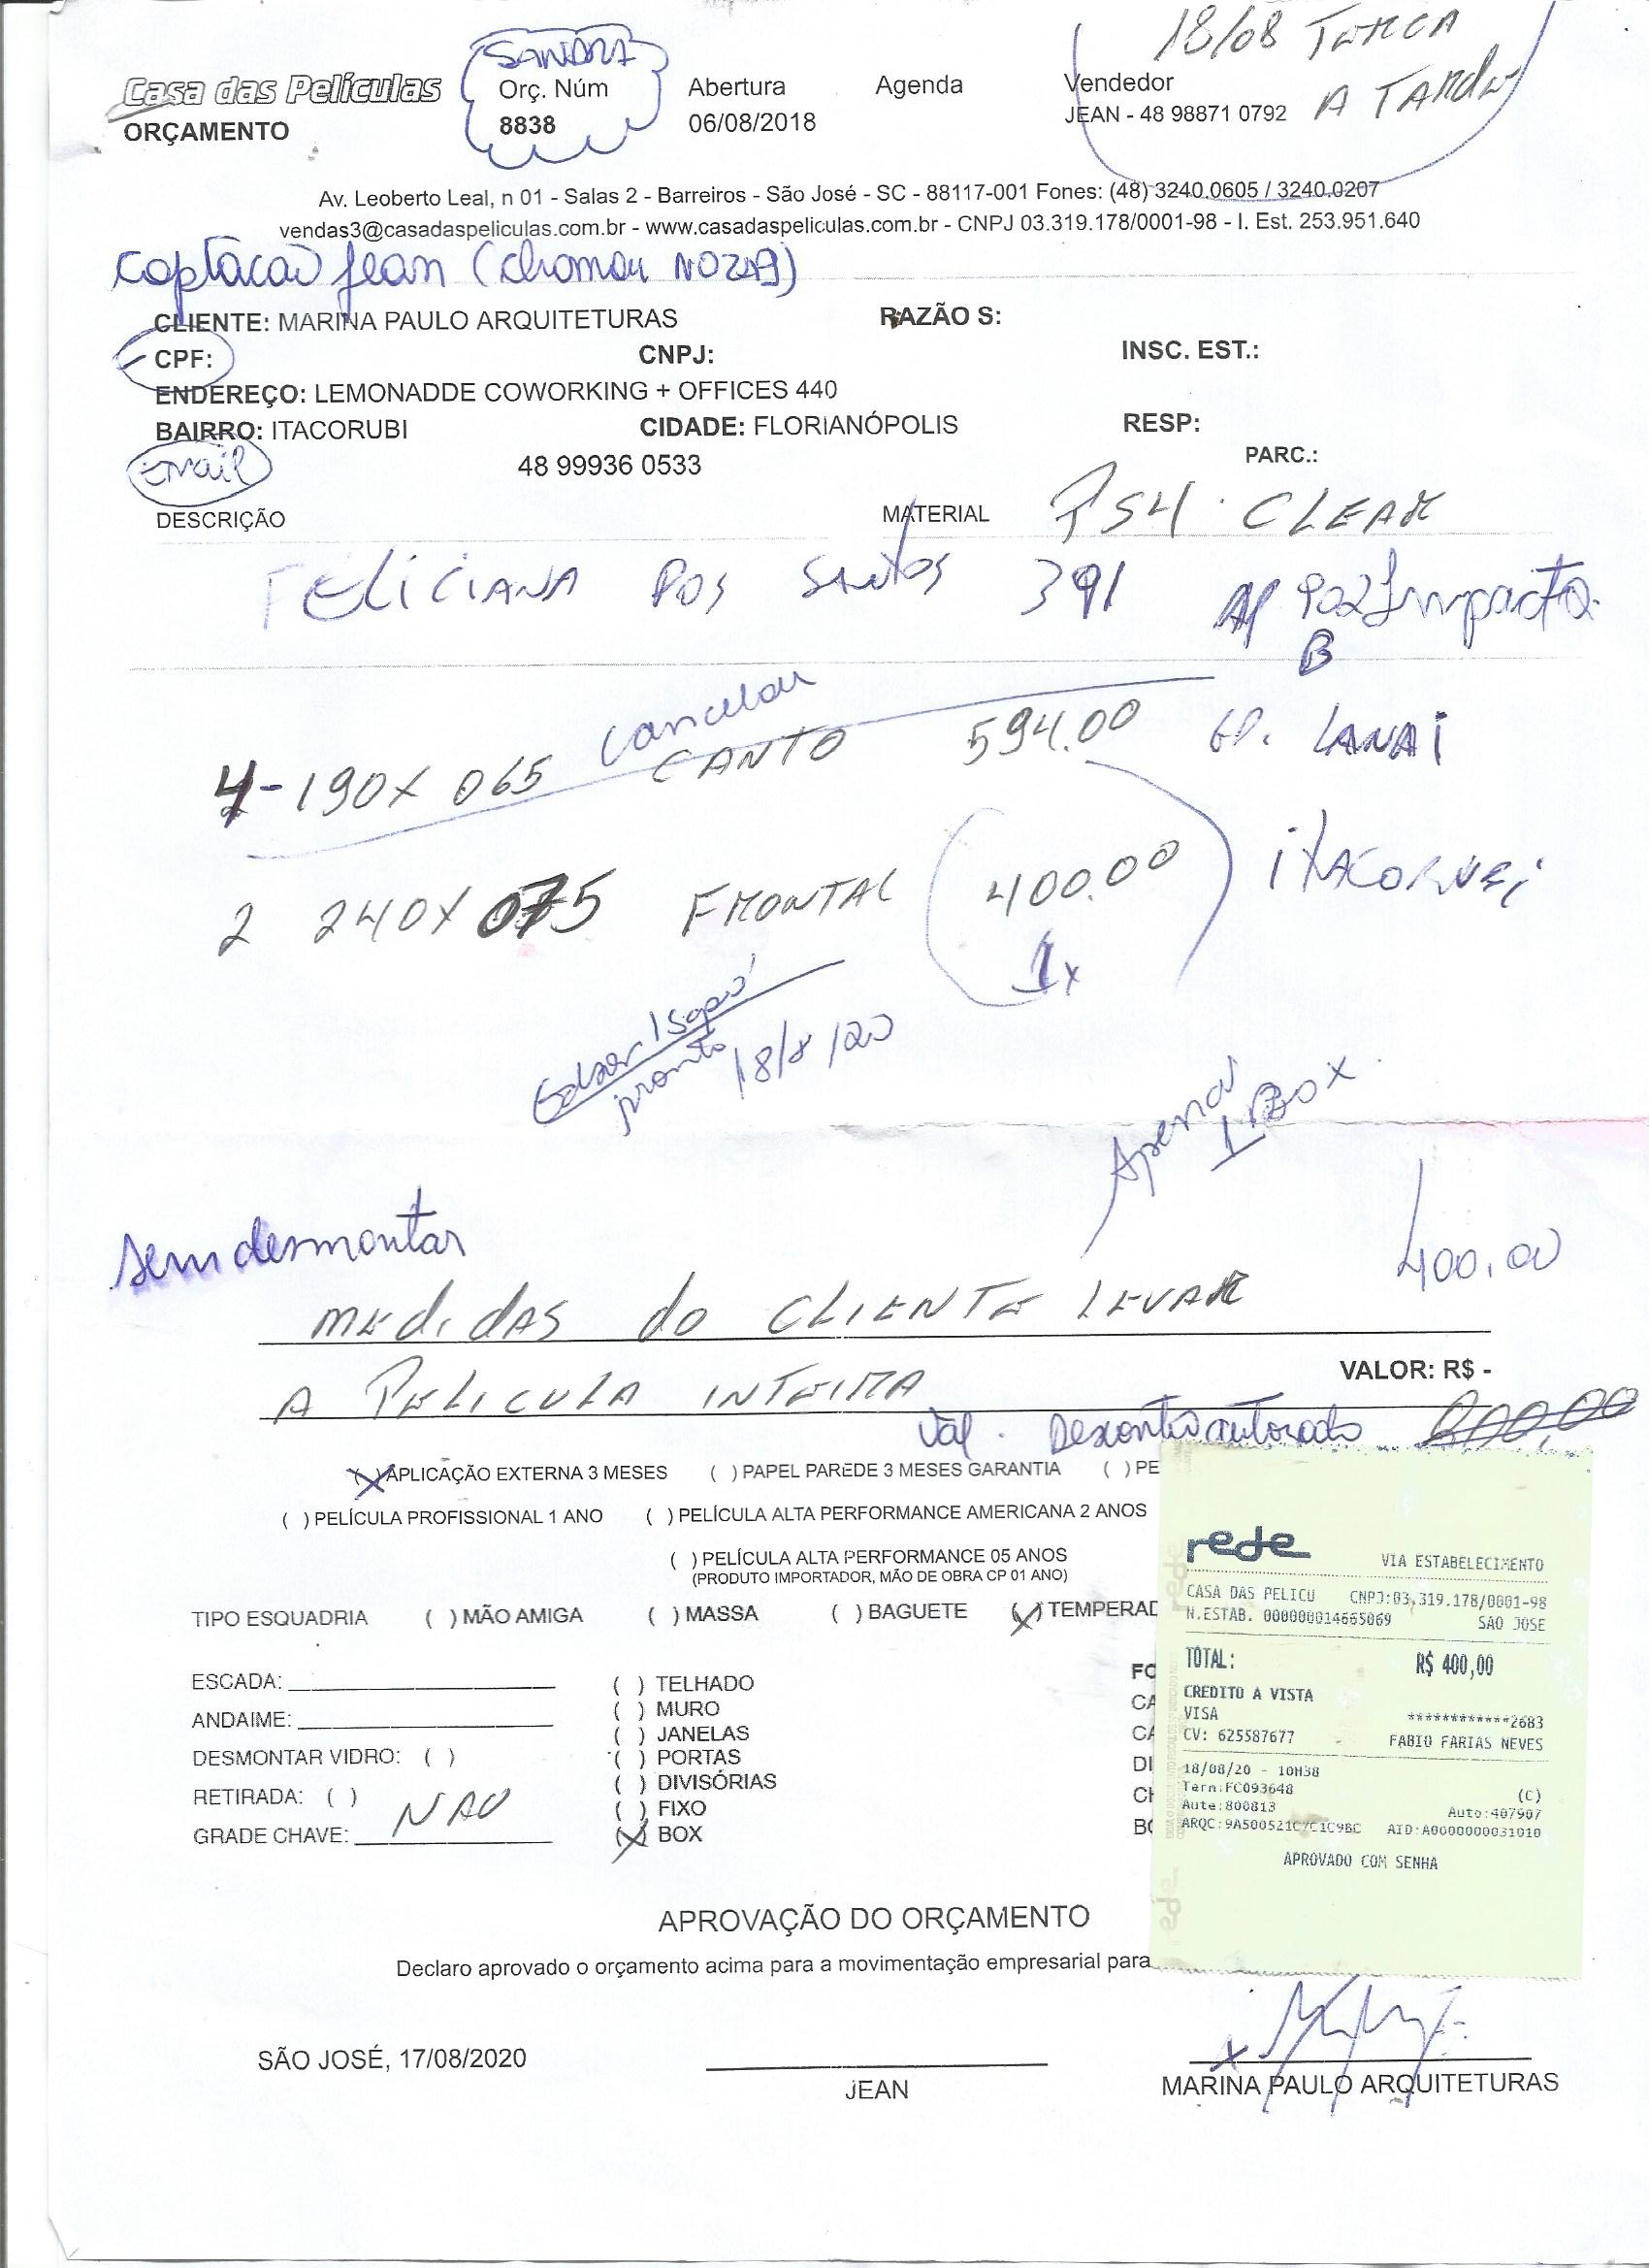 18/08 TERCA
A TARDE
SANDRA
Casa das Películas
ORÇAMENTO
Orç. Núm
8838
Abertura
06/08/2018
Agenda
Vendedor
JEAN - 48 98871 0792
Av. Leoberto Leal, n 01 - Salas 2 - Barreiros - São José - SC - 88117-001 Fones: (48) 3240.0605 / 3240.0207
vendas3@casadaspeliculas.com.br - www.casadaspeliculas.com.br - CNPJ 03.319.178/0001-98 - I. Est. 253.951.640
Captacao Jean (chamou NOZAP)
CLIENTE: MARINA PAULO ARQUITETURAS RAZÃO S:
CPF: CNPJ: INSC. EST.:
ENDEREÇO: LEMONADDE COWORKING + OFFICES 440
BAIRRO: ITACORUBI CIDADE: FLORIANÓPOLIS RESP:
Email 48 99936 0533 PARC.:
DESCRIÇÃO MATERIAL PS4 CLEAR
FELICIANA DOS SANTOS 391 AP 902 Impacta
B
cancelar
4-190X 065 CANTO 594.00 ED. LANAI
2 240X 075 FRONTAL 400.00 ITACORUBI
1x
pronto 18/8/20
Apenas
1 BOX
sem desmontar
400,00
MEDIDAS do CLIENTE LEVAR
A PELICULA INTEIRA
VALOR: R$ -
Val. Desconto autorado 800,00
( ) APLICAÇÃO EXTERNA 3 MESES ( ) PAPEL PAREDE 3 MESES GARANTIA ( ) PE
( ) PELÍCULA PROFISSIONAL 1 ANO ( ) PELÍCULA ALTA PERFORMANCE AMERICANA 2 ANOS
( ) PELÍCULA ALTA PERFORMANCE 05 ANOS
(PRODUTO IMPORTADOR, MÃO DE OBRA CP 01 ANO)
TIPO ESQUADRIA ( ) MÃO AMIGA ( ) MASSA ( ) BAGUETE ( ) TEMPERAD
ESCADA:
ANDAIME:
DESMONTAR VIDRO: ( )
RETIRADA: ( )
GRADE CHAVE: NAO
( ) TELHADO
( ) MURO
( ) JANELAS
( ) PORTAS
( ) DIVISÓRIAS
( ) FIXO
(X) BOX
FO
CA
CA
DI
CH
BO
rede
VIA ESTABELECIMENTO
CASA DAS PELICU CNPJ:03.319.178/0001-98
N.ESTAB. 000000014665069 SAO JOSE
TOTAL: R$ 400,00
CREDITO A VISTA
VISA ************2683
CV: 625587677 FABIO FARIAS NEVES
18/08/20 - 10H38
Term:FC093648 (C)
Aute:800813 Auto:407907
ARQC:9A500521C7C1C9BC AID:A0000000031010
APROVADO COM SENHA
APROVAÇÃO DO ORÇAMENTO
Declaro aprovado o orçamento acima para a movimentação empresarial para
SÃO JOSÉ, 17/08/2020
JEAN
X
MARINA PAULO ARQUITETURAS